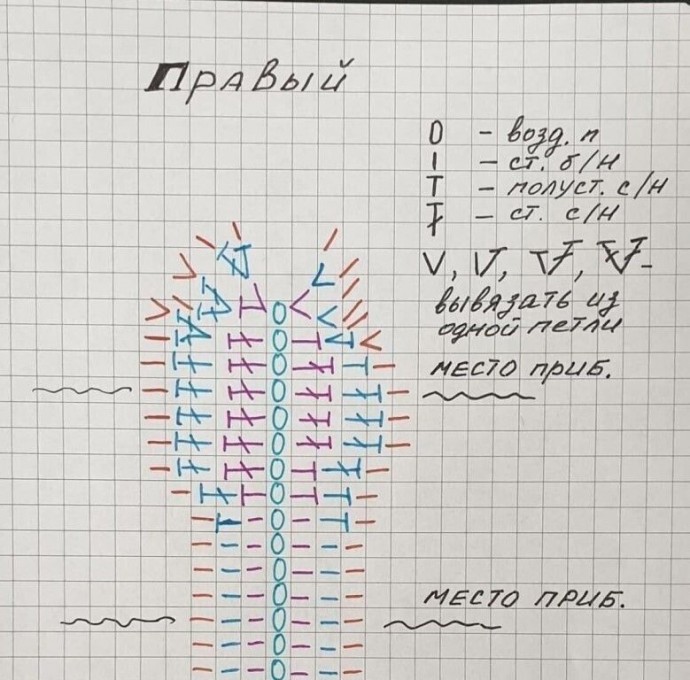 Правый
0 - возд. п
I - ст. б/н
T - полуст. с/н
Ŧ - ст. с/н
V, V, TŦ, ŦŦ -
вывязать из
одной петли
место приб.
место приб.